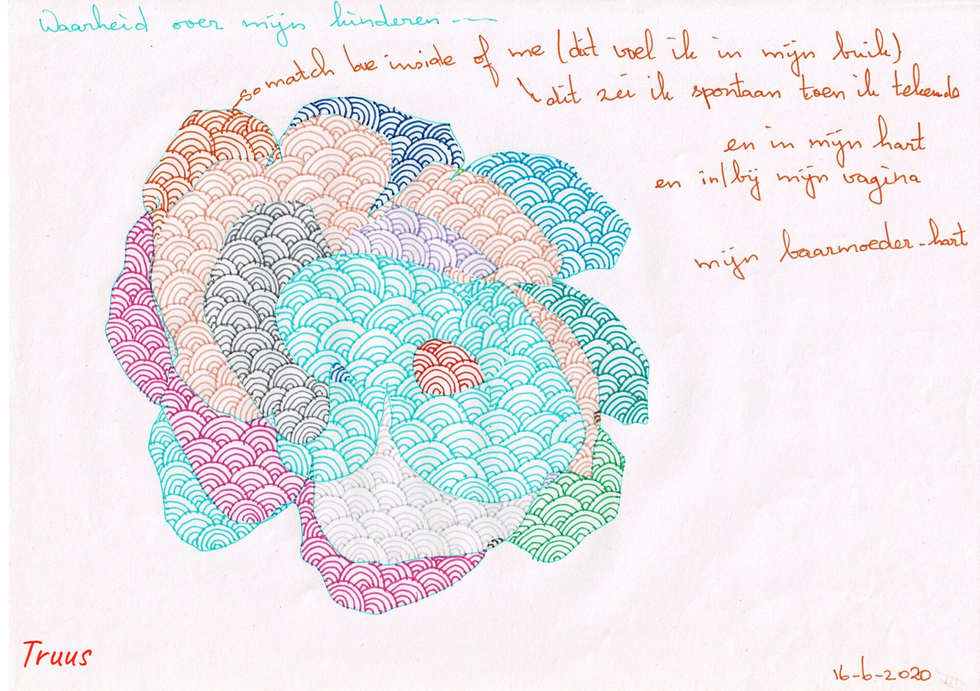 Waarheid over mijn kinderen ---
so match love inside of me (dit voel ik in mijn buik)
dit zei ik spontaan toen ik tekende
en in mijn hart
en in/bij mijn vagina
mijn baarmoeder-hart
Truus
16-6-2020